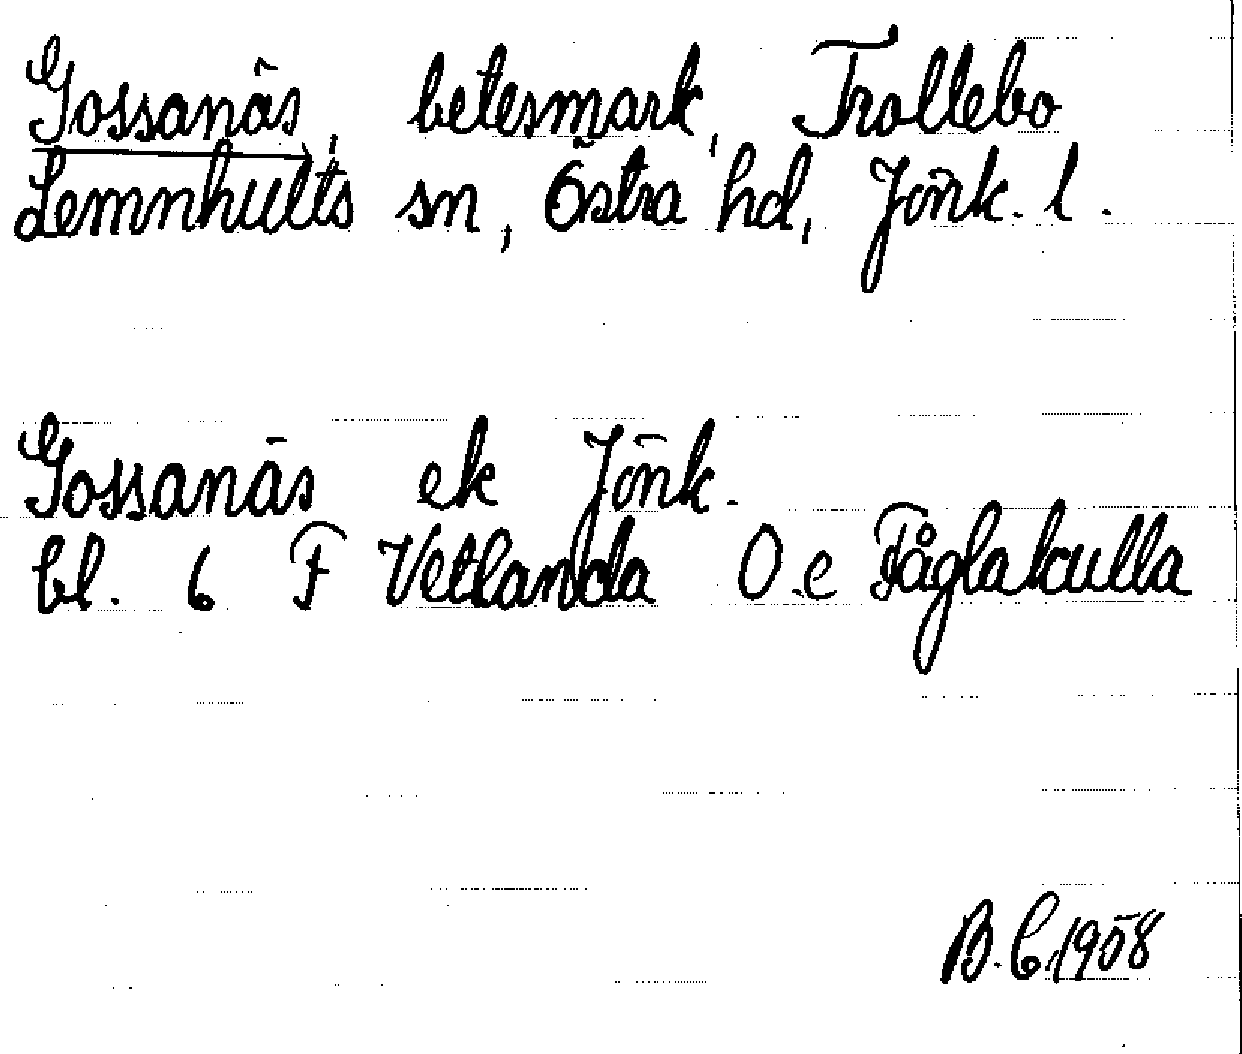 Gossanäs, betesmark, Trollebo
Lemnhults sn, Östra hd, Jönk. l.
Gossanäs ek Jönk.
bl. 6 F Vetlanda O.e Fåglakulla
B.C. 1958